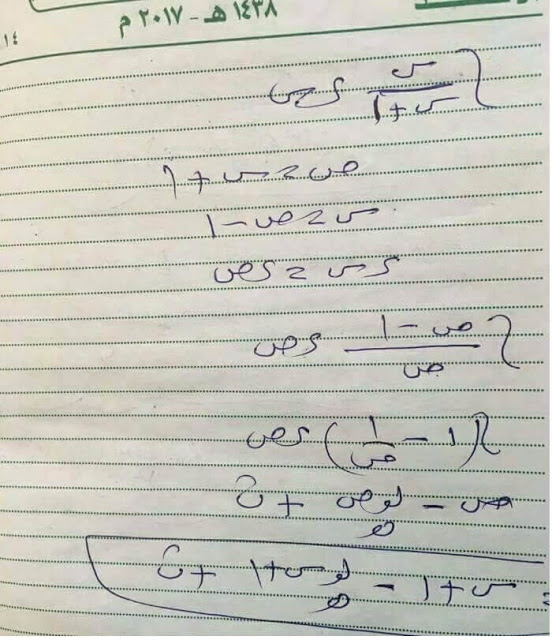 ١٤٣٨ هـ - ٢٠١٧ م
١٤
∫ س/(س+١) ءس
ص = س + ١
س = ص - ١
ءس = ءص
∫ (ص - ١)/ص ءص
∫ (١ - ١/ص) ءص
ص - لو_هـ ص + ث
= س + ١ - لو_هـ س + ١ + ث